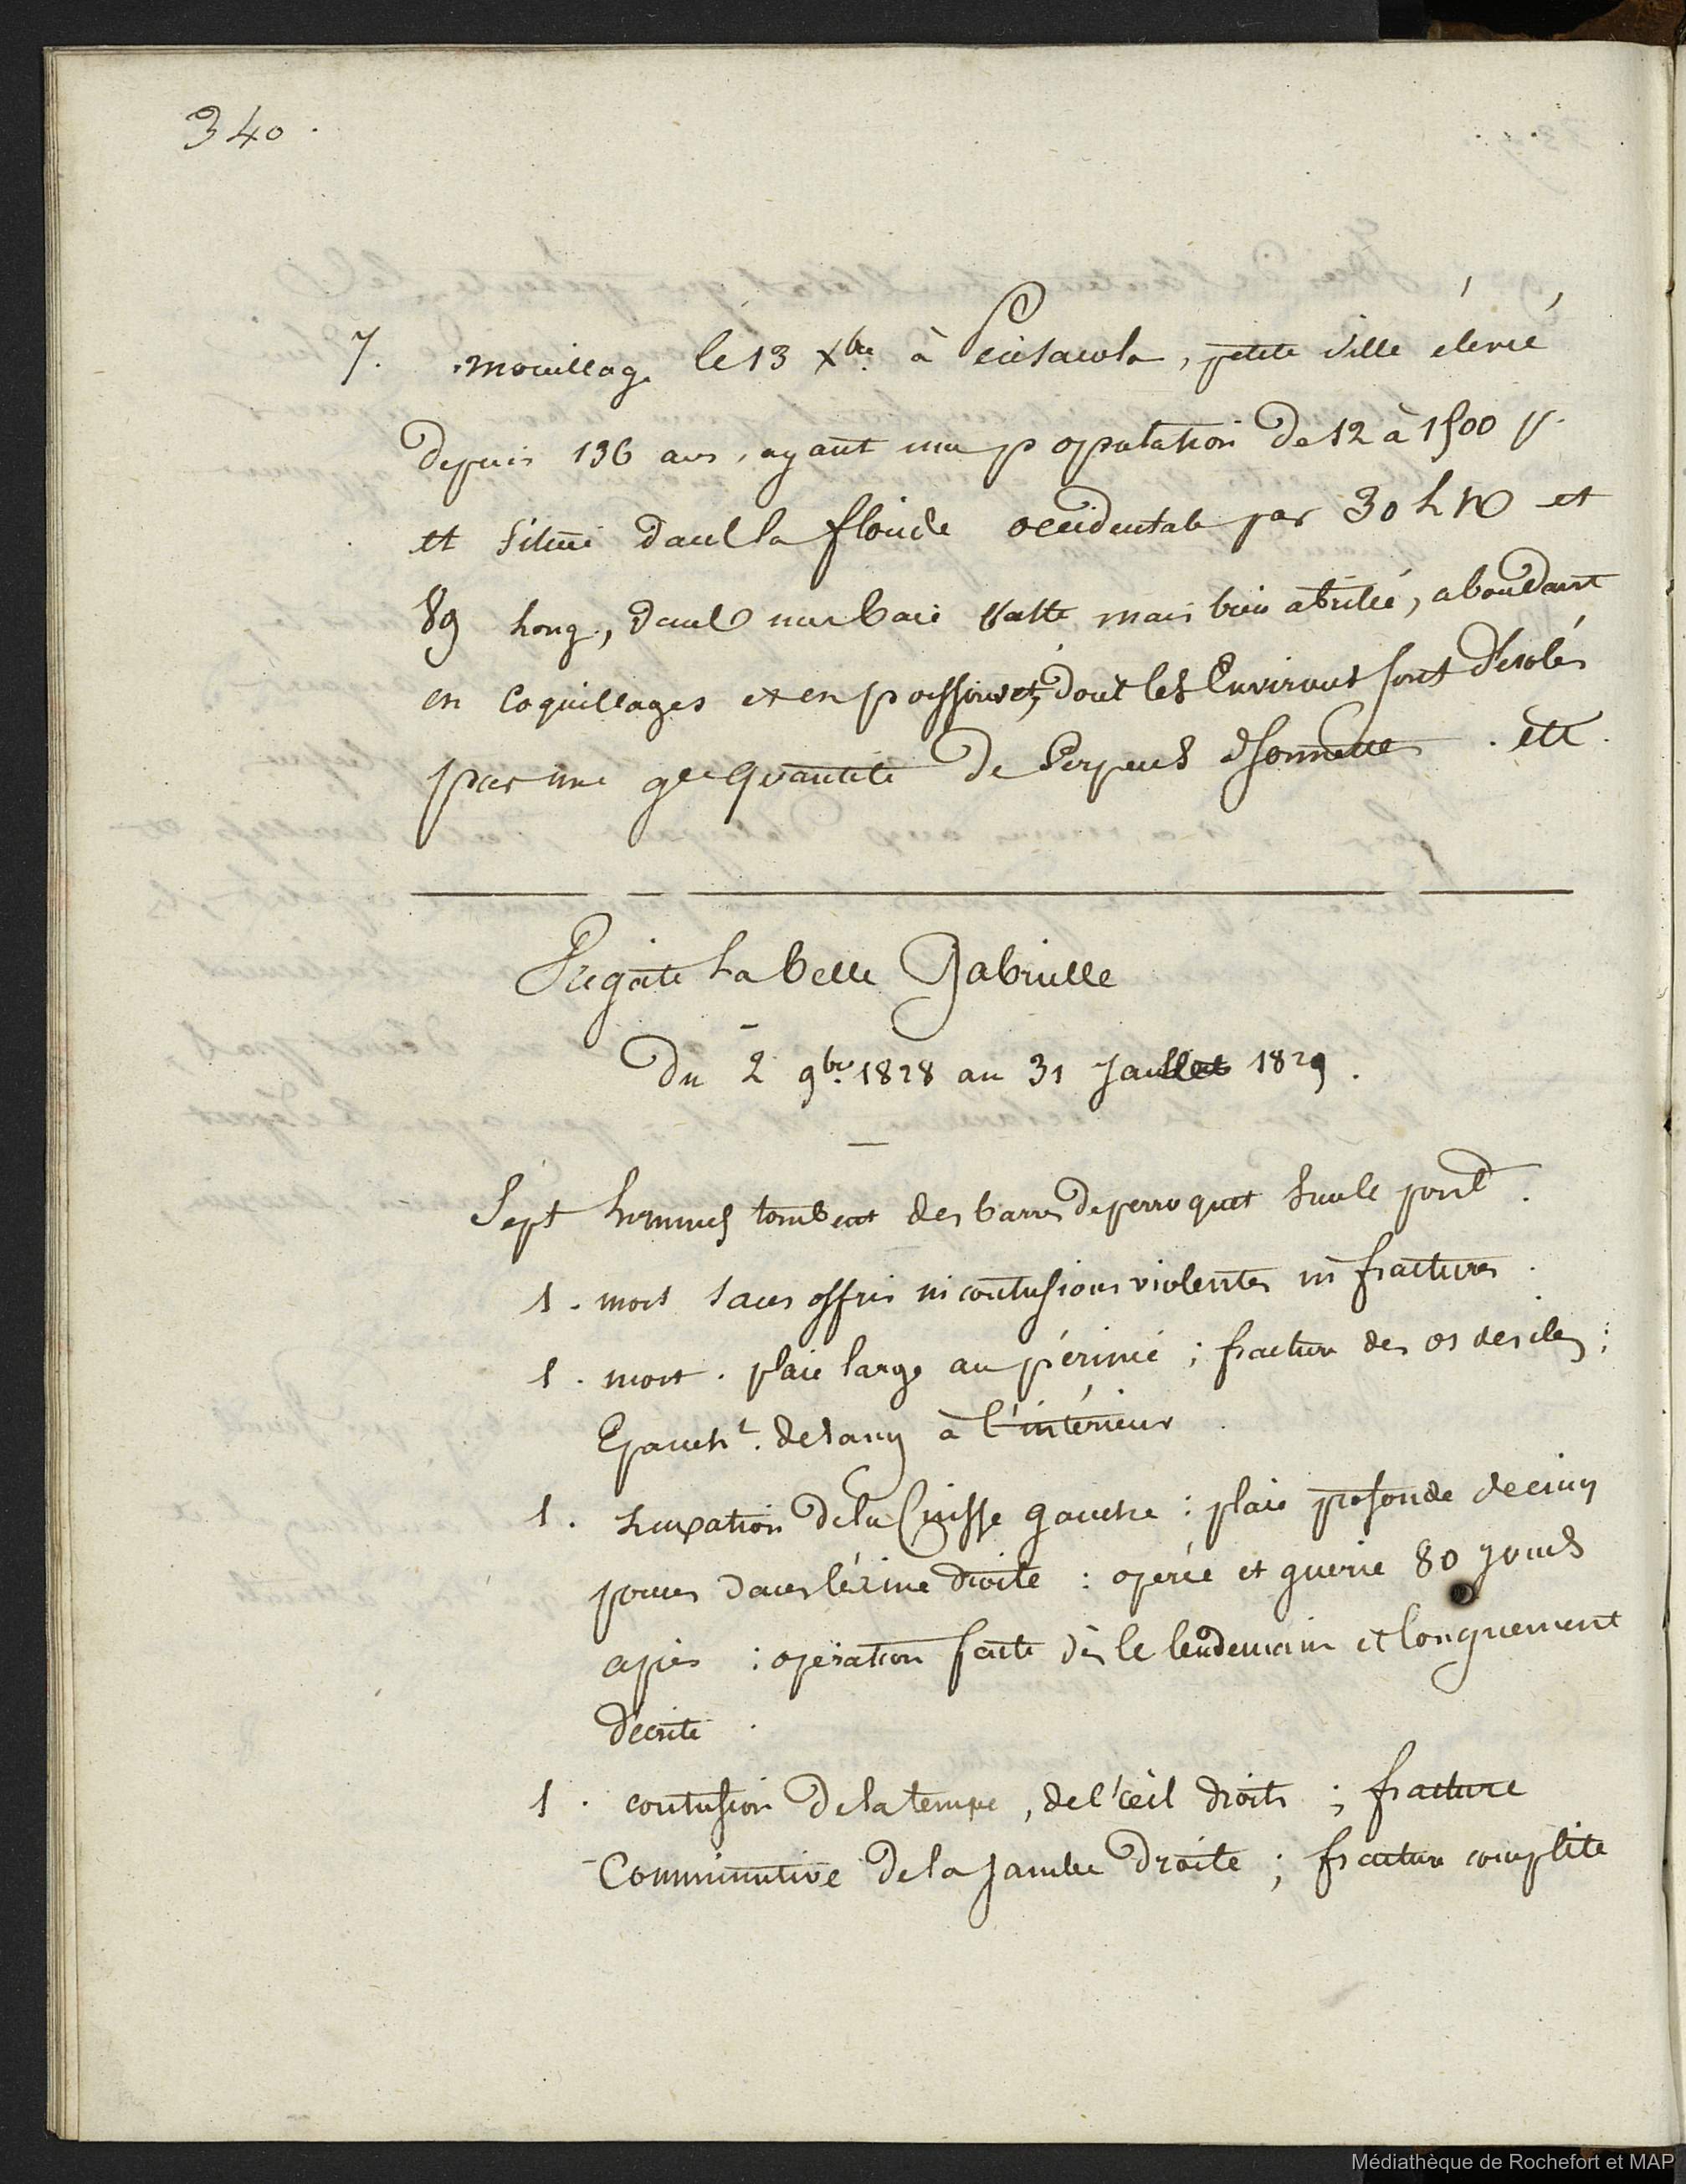 340.
7. mouillage le 13 Xbre à Pensacola, petite ville élevée
depuis 136 ans, ayant une population de 12 à 1500 p.
et située dans la floride occidentale par 30 L N et
89 Long., dans une baie vaste mais bien abritée, abondant
en Coquillages et en poissons et, dont les Environs sont désolés
par une gde quantité de Serpens à sonnettes. etc.
Frégate La belle Gabrielle
Du 2 9bre 1828 au 31 Juillet 1829.
Sept hommes tombent des barres de perroquet sur le pont.
1. mort sans offrir ni contusions violentes ni fractures.
1. mort. plaie large au périnée ; fracture des os des iles ;
Epancht. de sang à l'intérieur.
1. Luxation de la Cuisse gauche : plaie profonde de cinq
pouces dans l'aine droite : opérée et guérie 80 jours
après : opération faite dès le lendemain et longuement
décrite.
1. contusion de la tempe, de l'œil droits ; fracture
Comminutive de la jambe droite ; fracture complète
Médiathèque de Rochefort et MAP